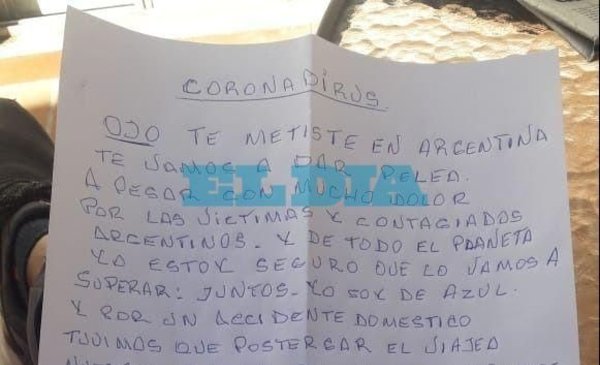 CORONADIRUS
OJO TE METISTE EN ARGENTINA
TE VAMOS A DAR PELEA.
A PESAR CON MUCHO DOLOR
POR LAS VICTIMAS Y CONTAGIADOS
ARGENTINOS. Y DE TODO EL PLANETA
YO ESTOY SEGURO QUE LO VAMOS A
SUPERAR: JUNTOS. YO SOY DE AZUL.
Y POR UN ACCIDENTE DOMESTICO
TUVIMOS QUE POSTERGAR EL VIAJE A
EL DIA